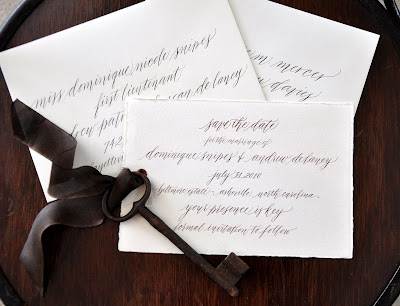 miss dominique nicole snipes
first lieutenant
742
m mercer
davis
save the date
for the marriage of
dominique snipes & andrew delaney
july 31, 2010
biltmore estate ~ asheville, north carolina
your presence is key
formal invitation to follow